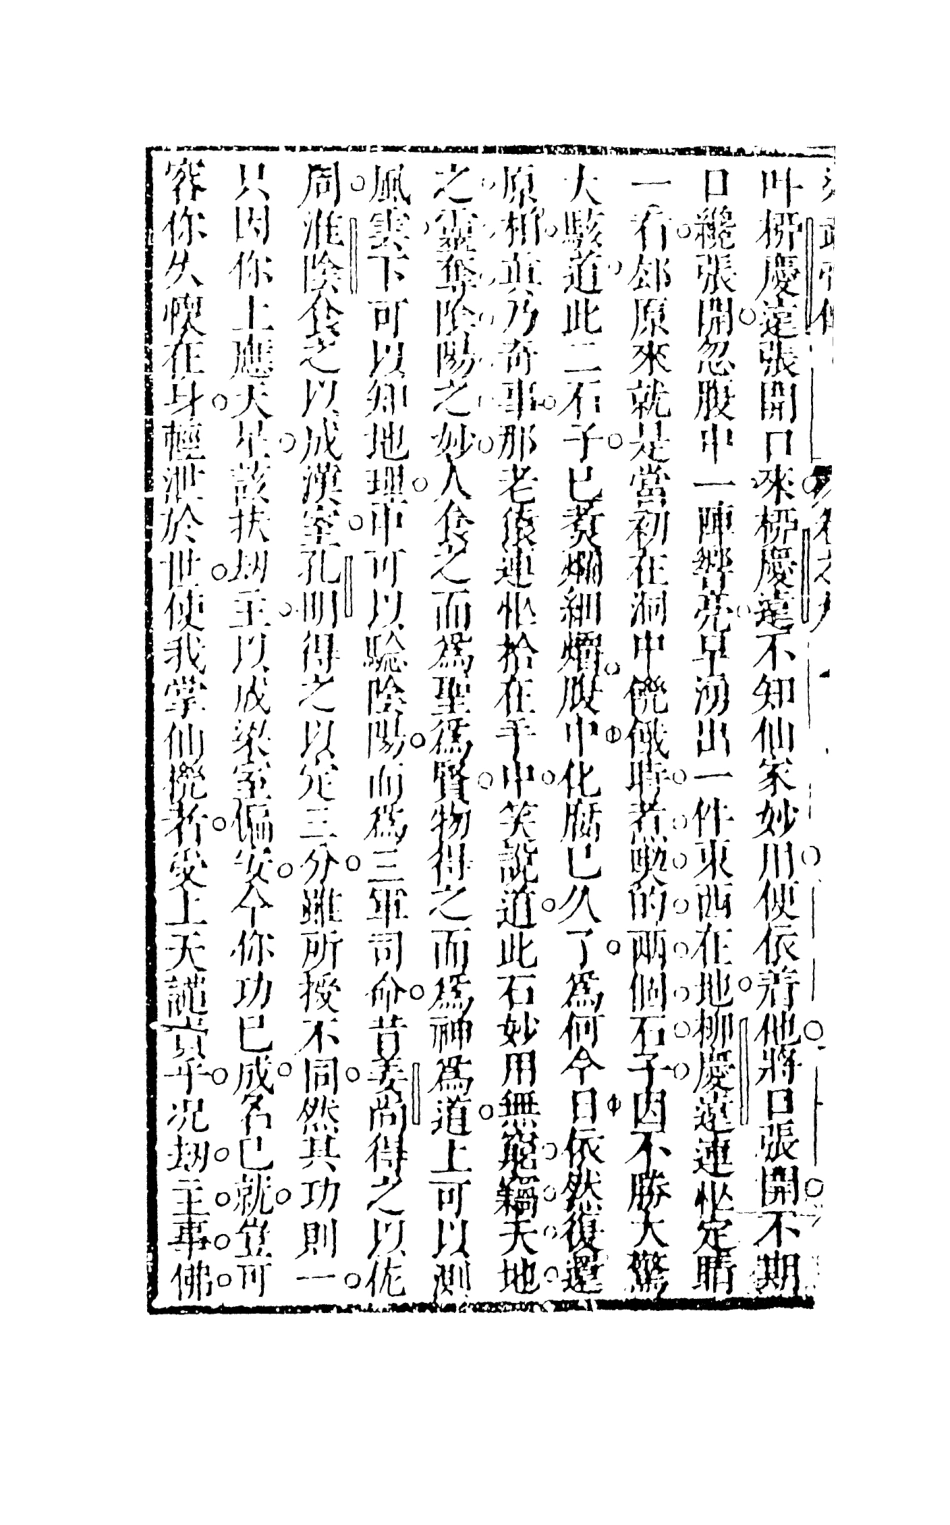 叫柳慶遠張開口來柳慶遠不知仙家妙用便依着他將口張開不期
口纔張開忽腹中一陣響亮早湧出一件東西在地柳慶遠連忙定睛
一看卻原來就是當初在洞中饑餓時煮喫的兩個石子因不勝大驚
大駭道此二石子已煮爛細嚼腹中化腐已久了爲何今日依然復還
原相眞乃奇事那老猿連忙拾在手中笑說道此石妙用無窮竊天地
之靈奪陰陽之妙人食之而爲聖爲賢物得之而爲神爲道上可以測
風雲下可以知地理中可以驗陰陽而爲三軍司命昔姜尚得之以佐
周淮陰食之以成漢室孔明得之以定三分雖所授不同然其功則一
只因你上應天星該扶刼主以成梁室偏安今你功已成名已就豈可
容你久懷在身輕泄於世使我掌仙機者受上天譴責乎况刼主事佛